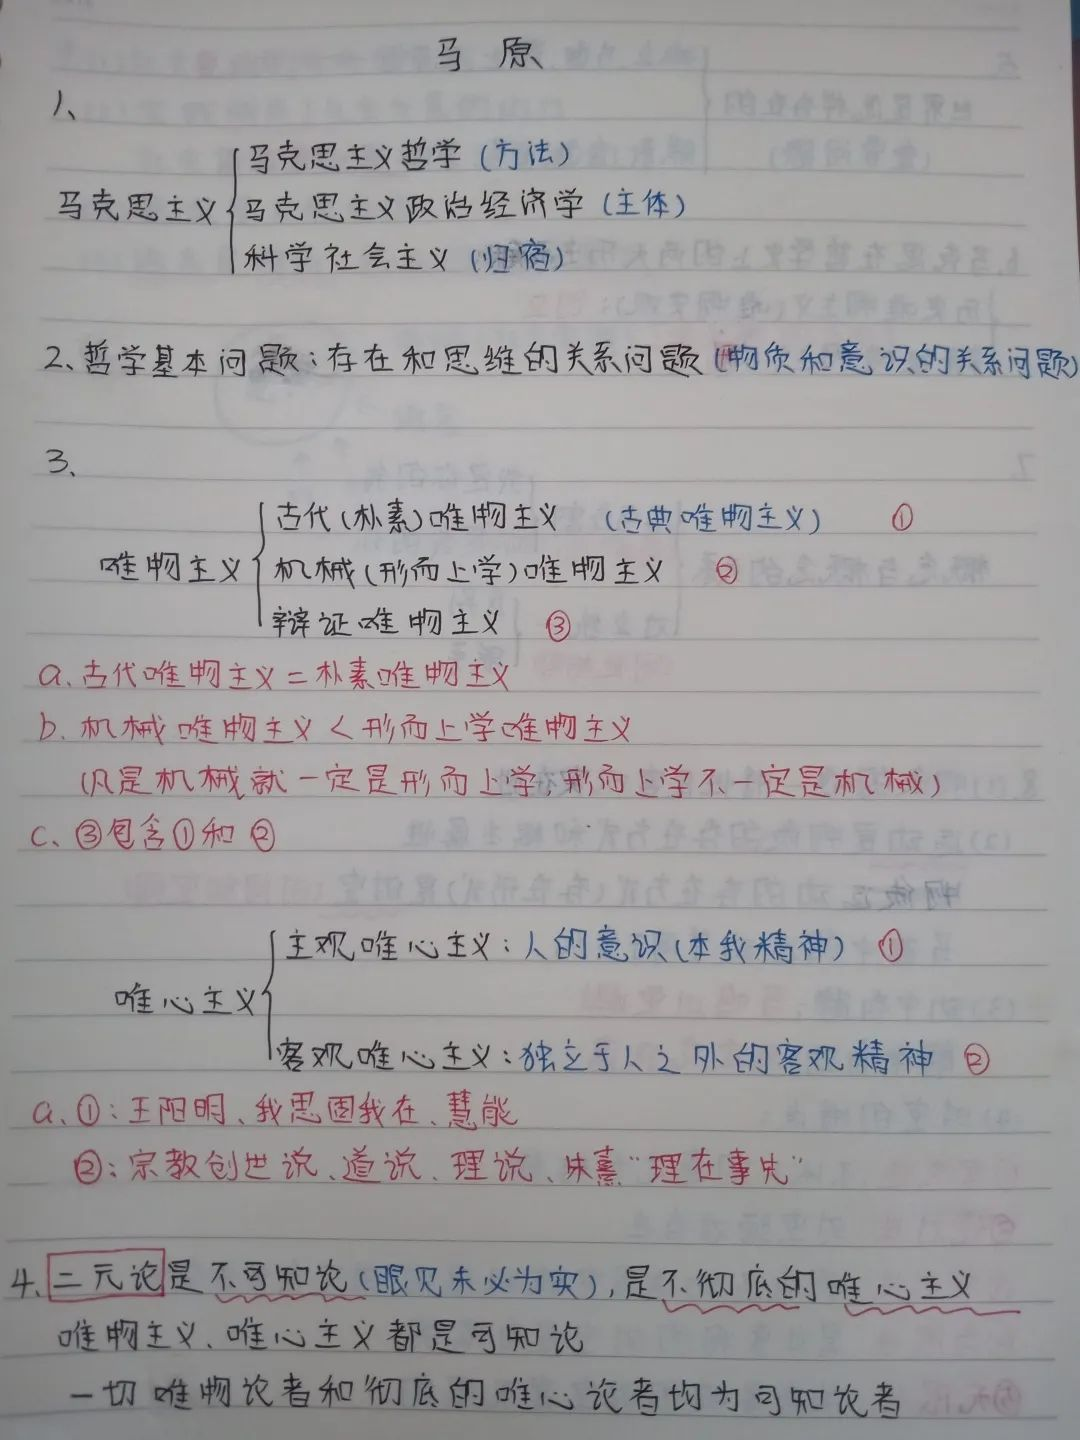 马 原
1、
马克思主义哲学（方法）
马克思主义 马克思主义政治经济学（主体）
科学社会主义（归宿）
2、哲学基本问题：存在和思维的关系问题（物质和意识的关系问题）
3、
古代（朴素）唯物主义 （古典唯物主义） ①
唯物主义 机械（形而上学）唯物主义 ②
辩证唯物主义 ③
a、古代唯物主义＝朴素唯物主义
b、机械唯物主义＜形而上学唯物主义
（凡是机械就一定是形而上学，形而上学不一定是机械）
c、③包含①和②
主观唯心主义：人的意识（本我精神） ①
唯心主义
客观唯心主义：独立于人之外的客观精神 ②
a、①：王阳明、我思固我在、慧能
②：宗教创世说、道说、理说、朱熹“理在事先”
4、二元论是不可知论（眼见未必为实），是不彻底的唯心主义
唯物主义、唯心主义都是可知论
一切唯物论者和彻底的唯心论者均为可知论者